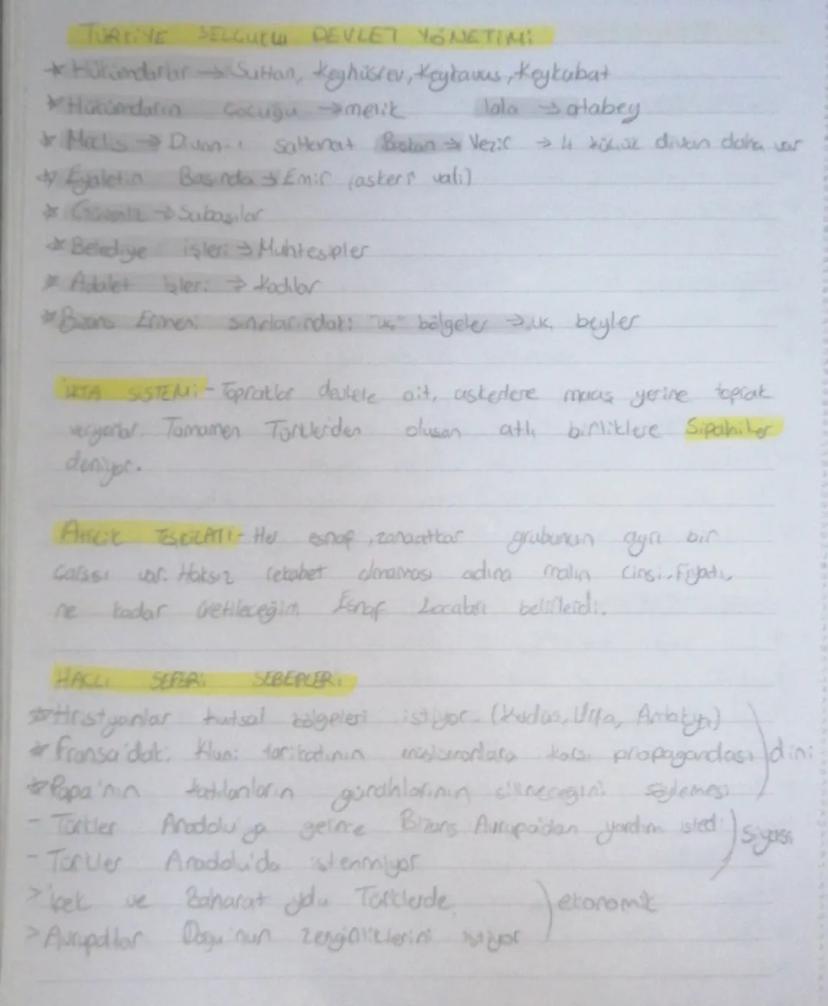 TÜRKİYE SELÇUKLU DEVLET YÖNETİMİ
* Hükümdarlar → Sultan, Keyhüsrev, Keykavus, Keykubat
* Hükümdarın çocuğu → melik lala → atabey
* Meclis → Divan-ı saltanat Bakan → Vezir → 4 küçük divan daha var
* Eyaletin Başında → Emir (askeri vali)
* Güvenlik → Subaşılar
* Belediye işleri → Muhtesipler
* Adalet İşleri → Kadılar
* Bizans Ermeni sınırlarındaki "uç" bölgeler → uç beyler
İKTA SİSTEMİ - Topraklar devlete ait, askerlere maaş yerine toprak
veriyorlar. Tamamen Türklerden oluşan atlı birliklere Sipahiler
deniyor.
AHİLİK TEŞKİLATI - Her esnaf, zanaatkar grubunun ayrı bir
çarşısı var. Haksız rekabet olmaması adına malın cinsi, fiyatı,
ne kadar üretileceğini Esnaf Locaları belirlerdi.
HAÇLI SEFERİ SEBEPLERİ
* Hristyanlar kutsal bölgeleri istiyor. (Kudüs, Urfa, Antakya)
* Fransa'daki Kluni tarikatının müslümanlara karşı propagandası dini
* Papa'nın katılanların günahlarının silineceğini söylemesi
- Türkler Anadolu'ya gelince Bizans Avrupa'dan yardım istedi siyasi
- Türkler Anadolu'da istenmiyor
> İpek ve Baharat yolu Türklerde ekonomik
> Avrupalılar Doğu'nun zenginliklerini istiyor